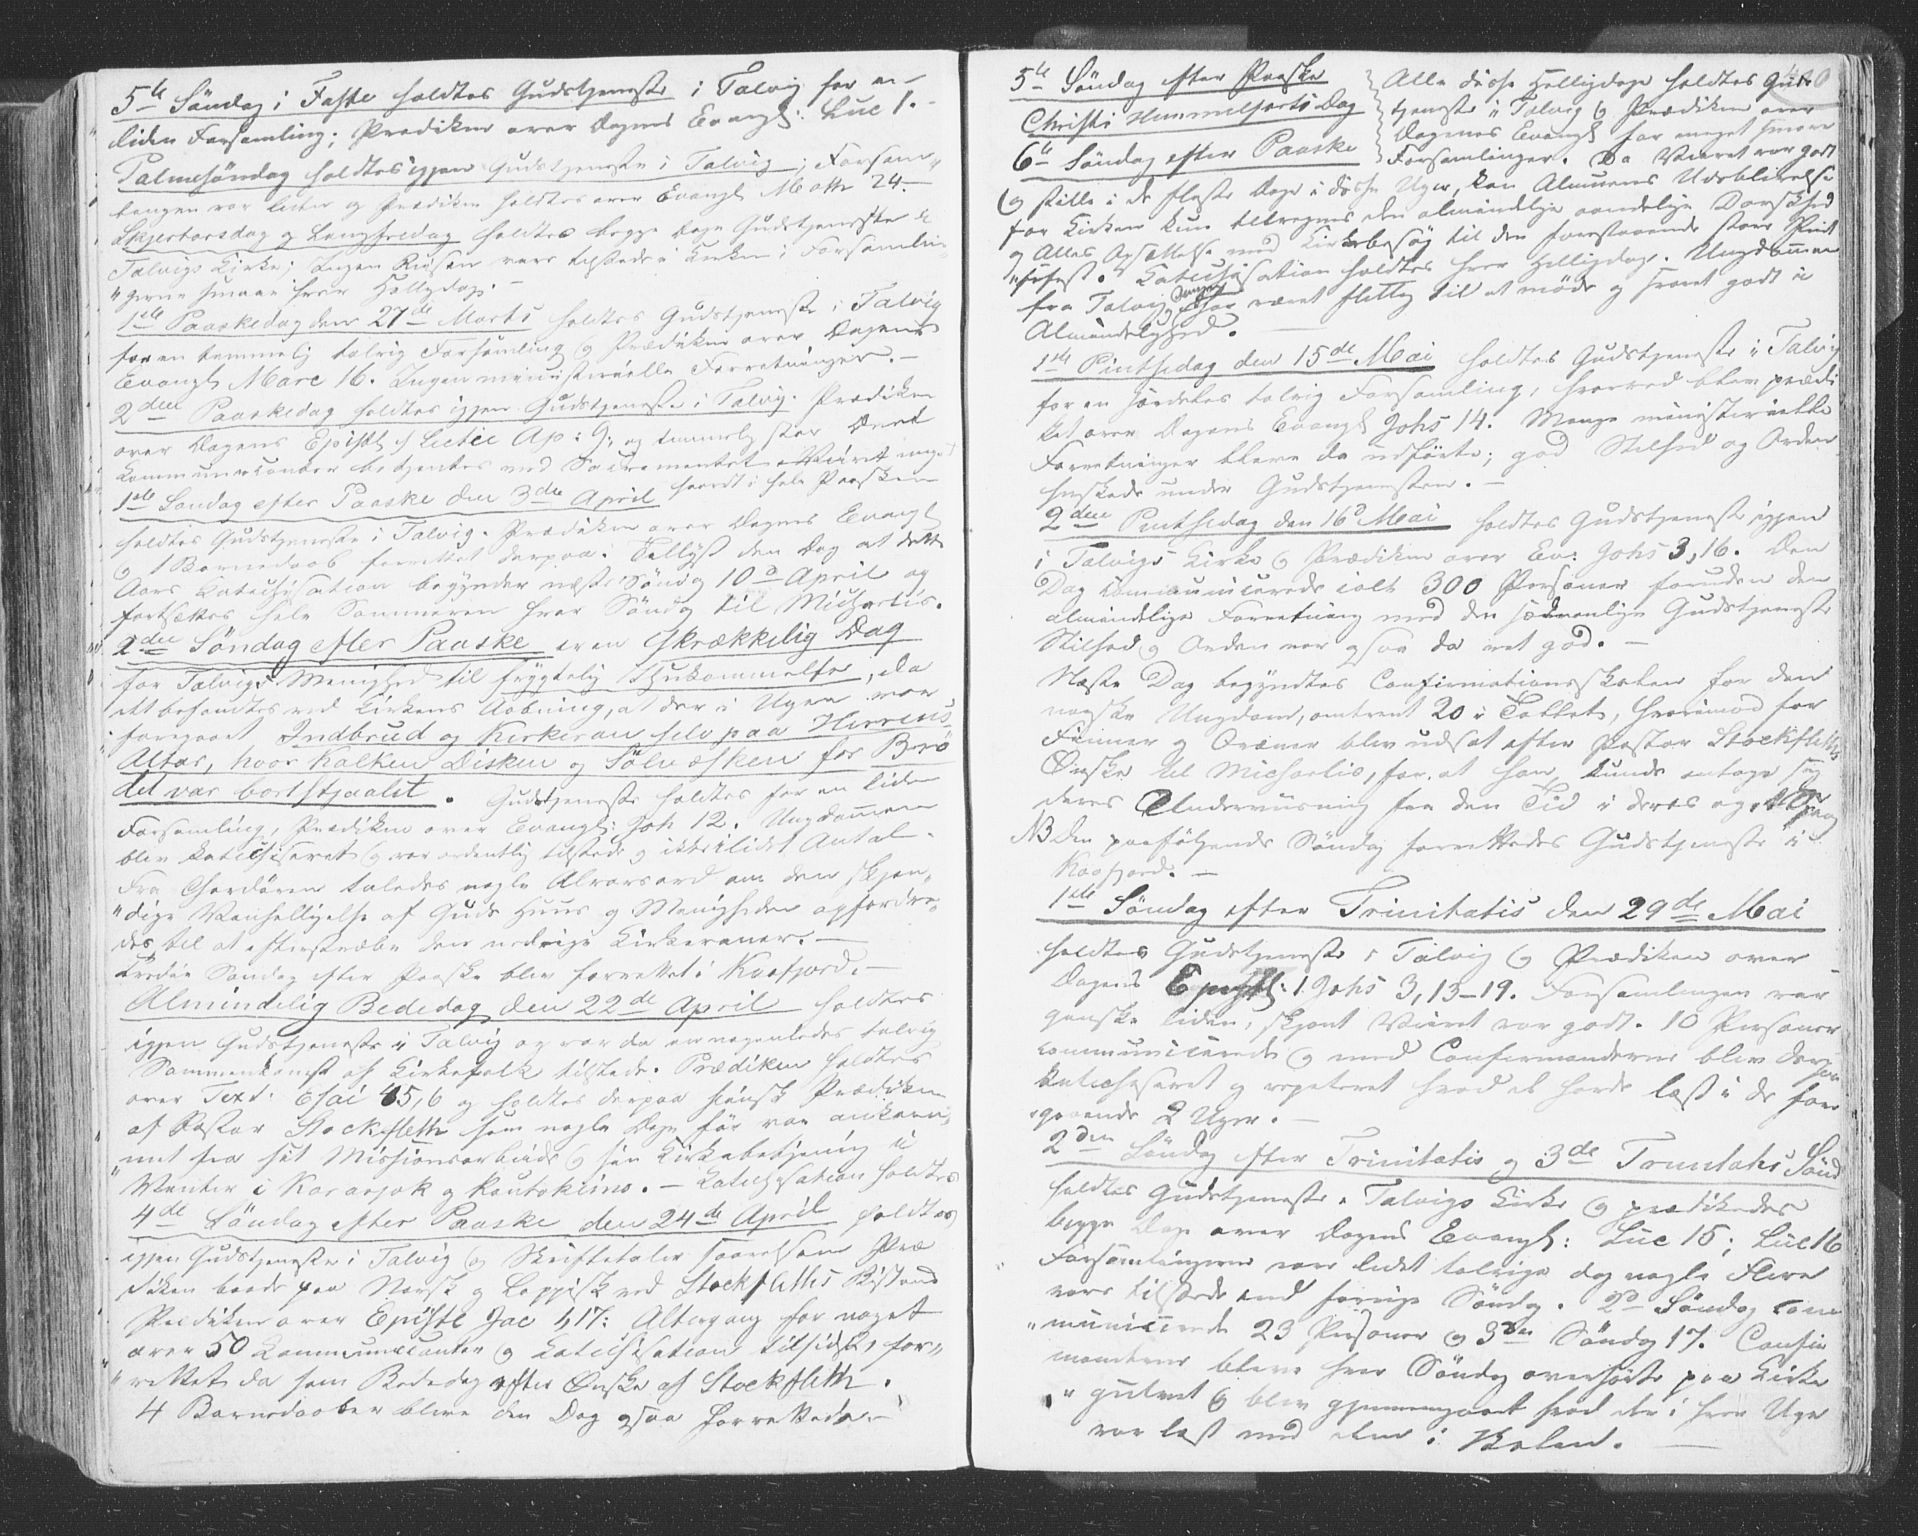 5te Søndag i Faste holdtes Gudstjeneste i Talvig for en
liden Forsamling; Prædiken over Dagens Evangl: Luc 1.
Palmesøndag holdtes igjen Gudstjeneste i Talvig; Forsam-
lingen var liden og Prædiken holdtes over Evangl Math 24.
Skjertorsdag og Langfredag holdtes begge Dage Gudstjeneste i
Talvigs Kirke; Ingen Reisen vare tilstede i Kirken; Forsamlin-
"gerne smaae hver Helligdag. -
1ste Paaskedag den 27de Marts holdtes Gudstjeneste i Talvig
for en temmelig talrig Forsamling og Prædiken over Dagens
Evangl Marc 16. Ingen ministerielle Forretninger. -
2den Paaskedag holdtes igjen Gudstjeneste i Talvig. Prædiken
over Dagens Epistel af Lectie Ap: G; og temmelig stor Deel
Kommunicanter betjentes med Sacramentet. Veiret meget
haardt i hele Paasken
1ste Søndag efter Paaske den 3die April
holdtes Gudstjeneste i Talvig. Prædiken over Dagens Evangl
og 1 Barnedaab forrettet derpaa. Tillyst den Dag at dette
Aars Katechisation begynder næste Søndag 10de April og
fortsættes hele Sommeren hver Søndag til Michaelis.
2den Søndag efter Paaske er en Skrækkelig Dag
for Talvigs Menighed til frygtelig Ihukommelse, da
det befandtes ved Kirkens Aabning, at der i Ugen var
foregaaet Indbrud og Kirkeran selv paa Herrens
Altar, hvor Kalken Disken og Sølvæsken for Brø
det var bortstjaalet. Gudstjeneste holdtes for en liden
Forsamling, Prædiken over Evangl: Joh 12. Ungdommen
blev katechiseret og var ordentlig tilstede og ikke i lidet Antal.
Fra Chordøren taledes nogle Alvorsord om den skjæn-
"dige Vanhelligelse af Guds Huus og Menigheden opfordre-
des til at efterstræbe den nedrige Kirkeraner. -
Tredie Søndag efter Paaske blev forrettet i Kaafjord. -
Almindelig Bededag den 22de April holdtes
igjen Gudstjeneste i Talvig og var da en nogenledes talrig
Sammenkomst af Kirkefolk tilstede. Prædiken holdtes
over Text: Esai 45,6 og holdtes derpaa finsk Prædiken
af Pastor Stockfleth som nogle Dage før var ankom-
met fra sit Missionsarbeide og sin Kirkebetjening i
"Vinter i Karasjok og Koutokeino. - Katechisation holdtes
4de Søndag efter Paaske den 24de April holdtes
igjen Gudstjeneste i Talvig og Skriftetaler saavelsom Præ
diken baade paa Norsk og Lappisk ved Stockfleths Bistand
Prædiken over Epistl Jac 1,17: Altergang for noget
over 50 Kommunicanter og Katechisation tilsidst, for-
"rettet da som Bededag efter Ønske af Stockfleth.
4 Barnedaaber bleve den Dag ogsaa forrettede. -
5te Søndag efter Paaske
Christi Himmelfarts Dag
6te Søndag efter Paaske
Alle disse Helligdage holdtes Guds
tjeneste i Talvig og Prædiken over
Dagenes Evangl for meget smaae
Forsamlinger. Da Veiret var godt
og stille i de fleste Dage i disse Uger, kan Almuens Udeblivelse
for Kirken kun tilregnes den almindelige aandelige Dorskhed
og Alles Opsættelse med Kirkebesøg til den forestaaende store Pint
"sefest. Katechisation holdtes hver Helligdag. Ungdommen
fra Talvig Sogn har været flittig til at møde og svaret godt i
Almindelighed. -
1ste Pintsedag den 15de Mai holdtes Gudstjeneste i Talvig
for en særdeles talrig Forsamling, hvorved blev prædi
ket over Dagens Evangl Johs 14. Mange ministerielle
Forretninger bleve da udførte; god Stilhed og Orden
herskede under Gudstjenesten. -
2den Pintsedag den 16de Mai holdtes Gudstjeneste igjen
i Talvigs Kirke og Prædiken over Ev: Johs 3,16. Den
Dag communicerede ialt 300 Personer foruden den
almindelige Forretning med den sædvanlige Gudstjeneste
Stilhed og Orden var ogsaa da ret god. -
Næste Dag begyndtes Confirmationsskolen for den
norske Ungdom, omtrent 20 i Tallet, hvorimod for
Finner og Qvæner blev udsat efter Pastor Stockfleths
Ønske til Michaelis, for at han kunde antage sig
deres Underviisning fra den Tid i deres eget Sprog
NB Den paafølgende Søndag forrettedes Gudstjeneste i
Kaafjord. -
1ste Søndag efter Trinitatis den 29de Mai
holdtes Gudstjeneste i Talvig og Prædiken over
Dagens Epistl: 1. Johs 3,13-19. Forsamlingen var
ganske liden, skjønt Veiret var godt. 10 Personer
communicerede og med Confirmanderne blev derpaa
katechiseret og repeteret hvad de havde læst i de fore
"gaaende 2 Uger. -
2den Søndag efter Trinitatis og 3de Trinitatis Sønd
holdtes Gudstjeneste i Talvigs Kirke og prædikedes
begge Dage over Dagens Evangl: Luc 15; Luc 16
Forsamlingerne vare lidet talrige dog nogle Flere
vare tilstede end forrige Søndag. 2den Søndag com
"municerede 23 Personer og 3die Søndag 17. Confir
manderne bleve hver Søndag overhørte paa Kirke
"gulvet og blev gjennemgaaet hvad der i hver Uge
var læst med dem i Skolen. -